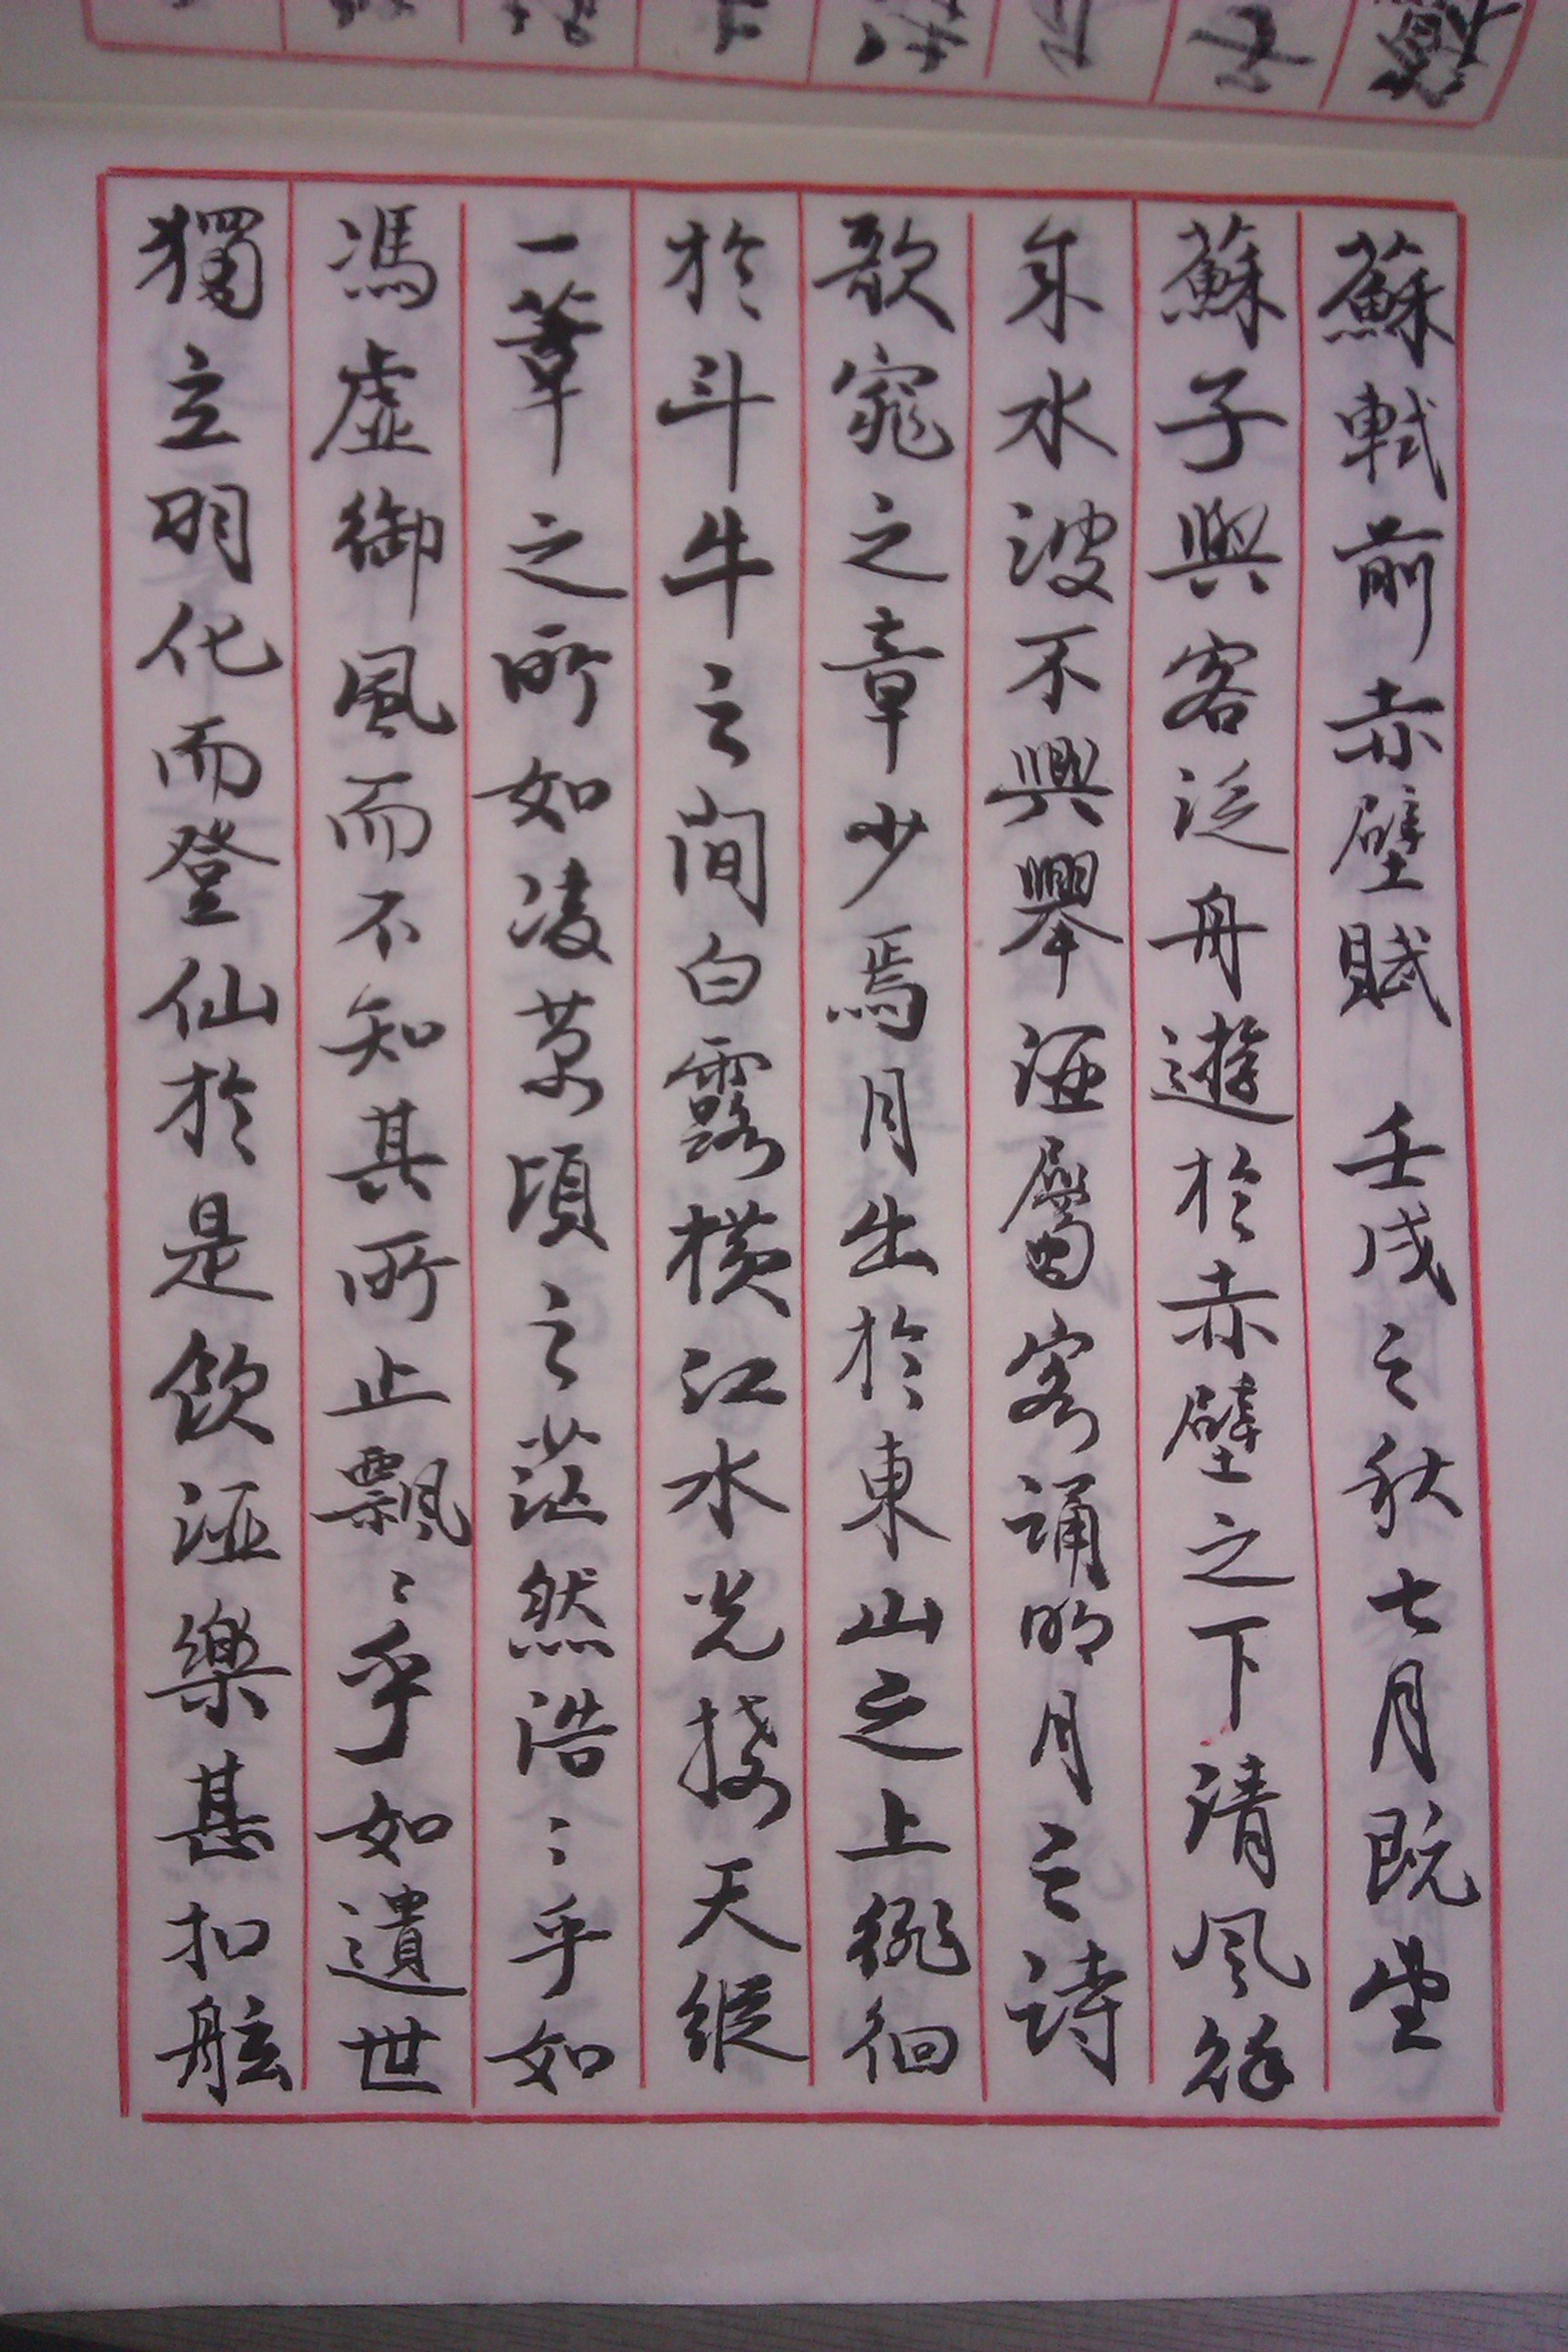 蘇軾前赤壁賦 壬戌之秋七月既望
蘇子與客泛舟遊於赤壁之下清風徐
來水波不興舉酒屬客誦明月之詩
歌窕之章少焉月出於東山之上徘徊
於斗牛之間白露橫江水光接天縱
一葦之所如凌萬頃之茫然浩〻乎如
馮虛御風而不知其所止飄〻乎如遺世
獨立羽化而登仙於是飲酒樂甚扣舷